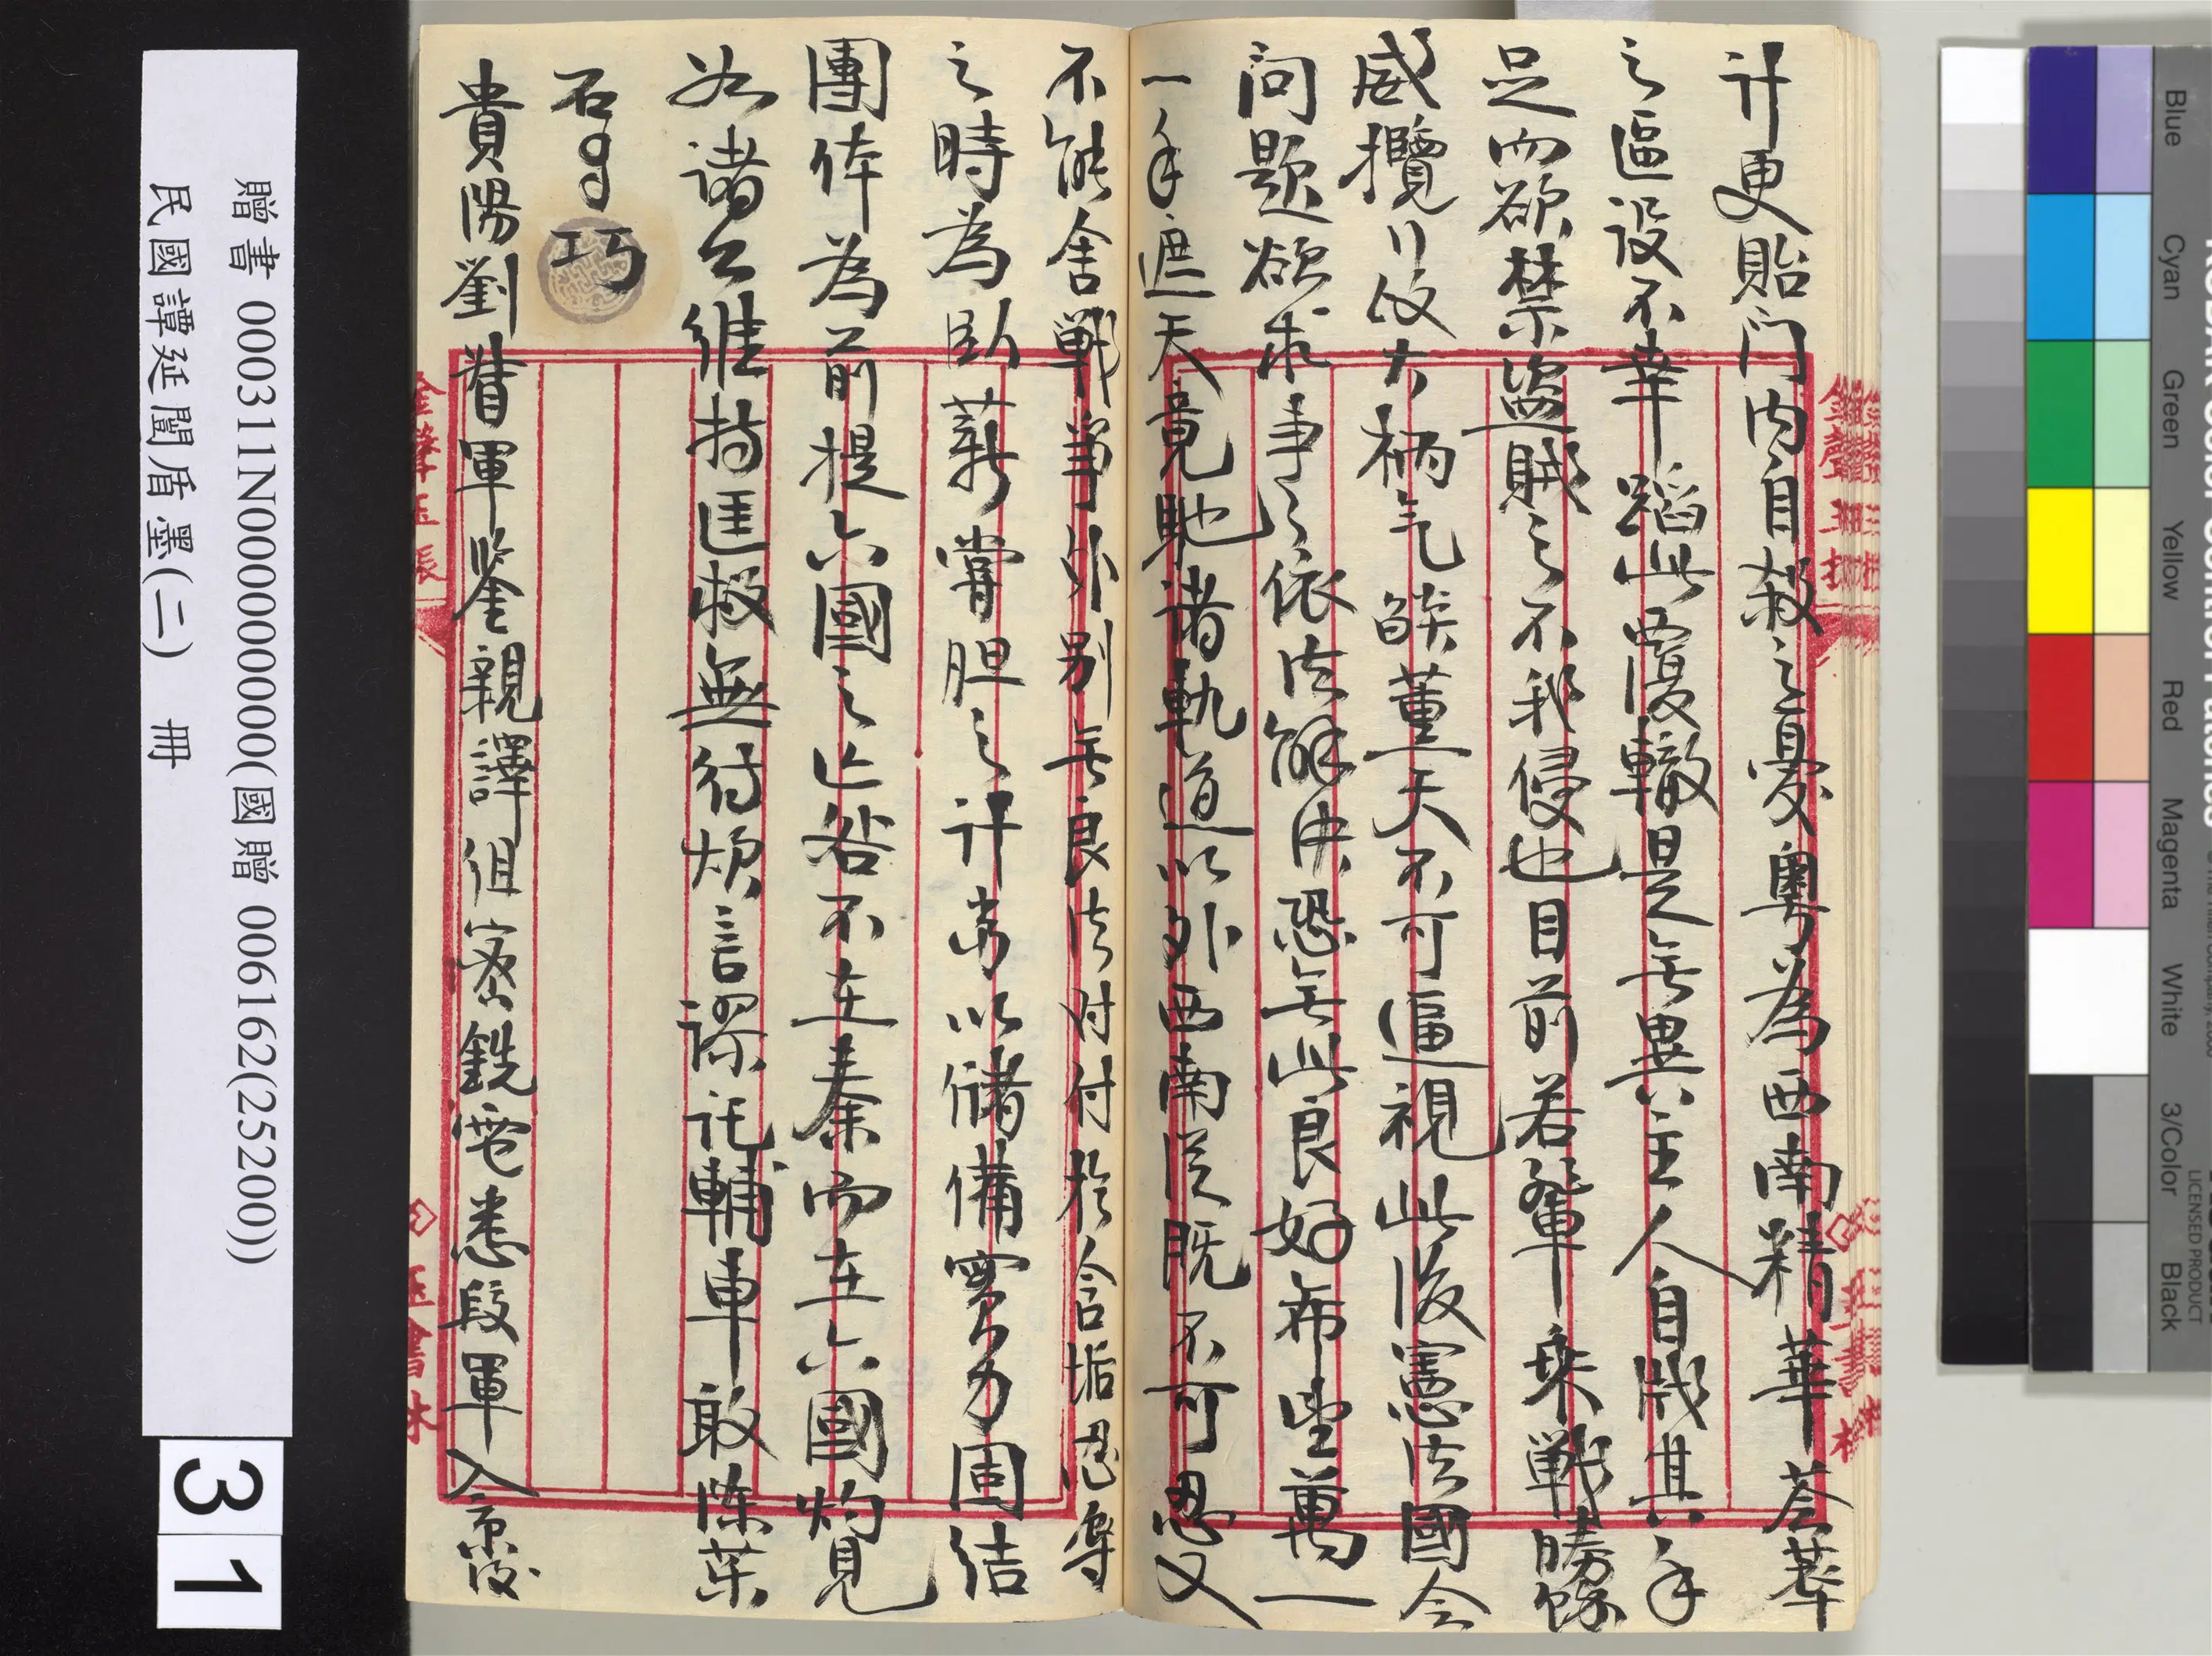 計更貽門內自殺之憂粵為西南精華荟萃
之區設不幸蹈此覆轍是無異主人自戕其手
足而欲禁盜賊之不我侵也目前若輩乘戰勝餘
威攬行政大柄氣燄薰天不可逼視此後憲法國会
问題欲求事之依法解决恐無此良好希望萬一
一手遮天竟馳諸軌道以外西南漠既不可忍又
不能舍戰爭外別無良法对付於含垢忍辱
之時為臥薪嘗胆之計端以儲備實力固结
團体為前提六國之亡咎不在秦而在六國灼見
如諸公維持匡救無待煩言謬託輔車敢陈葉
石 巧
貴陽劉督軍鉴親譯徂密銑電悉段軍入京後
贈書 000311N0000000000(國贈 006162(25200))
民國譚延闓盾墨(二) 冊
31
Blue
Cyan
Green
Yellow
Red
Magenta
White
3/Color
Black
LICENSED PRODUCT